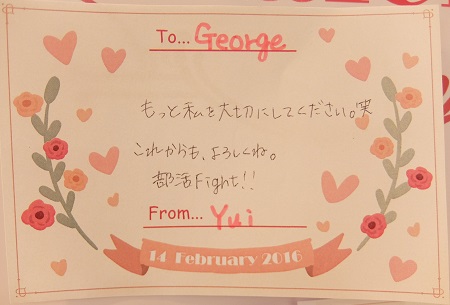 To... George
もっと私を大切にしてください。笑
これからも、よろしくね。
部活Fight!!
From... Yui
14 February 2016